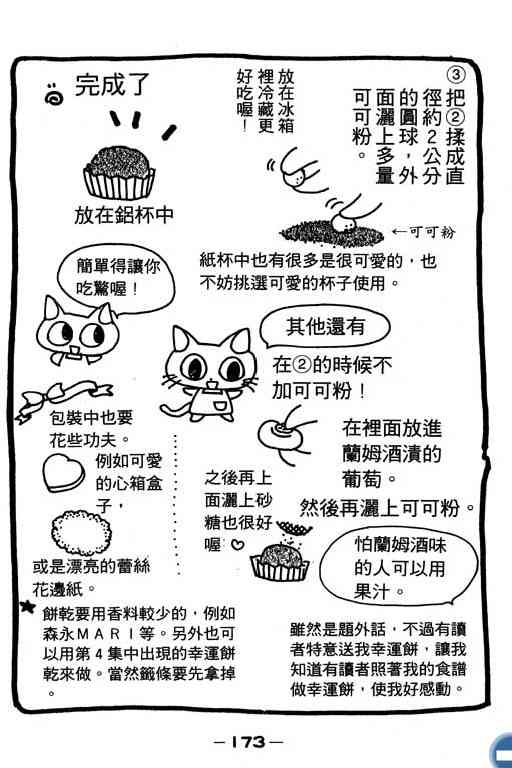 ③把②揉成直
徑約２公分
的圓球，外
面灑上多量
可可粉。
放在冰箱
裡冷藏更
好吃喔！
完成了
放在鋁杯中
←可可粉
紙杯中也有很多是很可愛的，也
不妨挑選可愛的杯子使用。
簡單得讓你
吃驚喔！
其他還有
在②的時候不
加可可粉！
包裝中也要
花些功夫。
例如可愛
的心箱盒
子，
或是漂亮的蕾絲
花邊紙。
在裡面放進
蘭姆酒漬的
葡萄。
然後再灑上可可粉。
之後再上
面灑上砂
糖也很好
喔♡
怕蘭姆酒味
的人可以用
果汁。
★餅乾要用香料較少的，例如
森永ＭＡＲＩ等。另外也可
以用第４集中出現的幸運餅
乾來做。當然籤條要先拿掉
。
雖然是題外話，不過有讀
者特意送我幸運餅，讓我
知道有讀者照著我的食譜
做幸運餅，使我好感動。
－173－